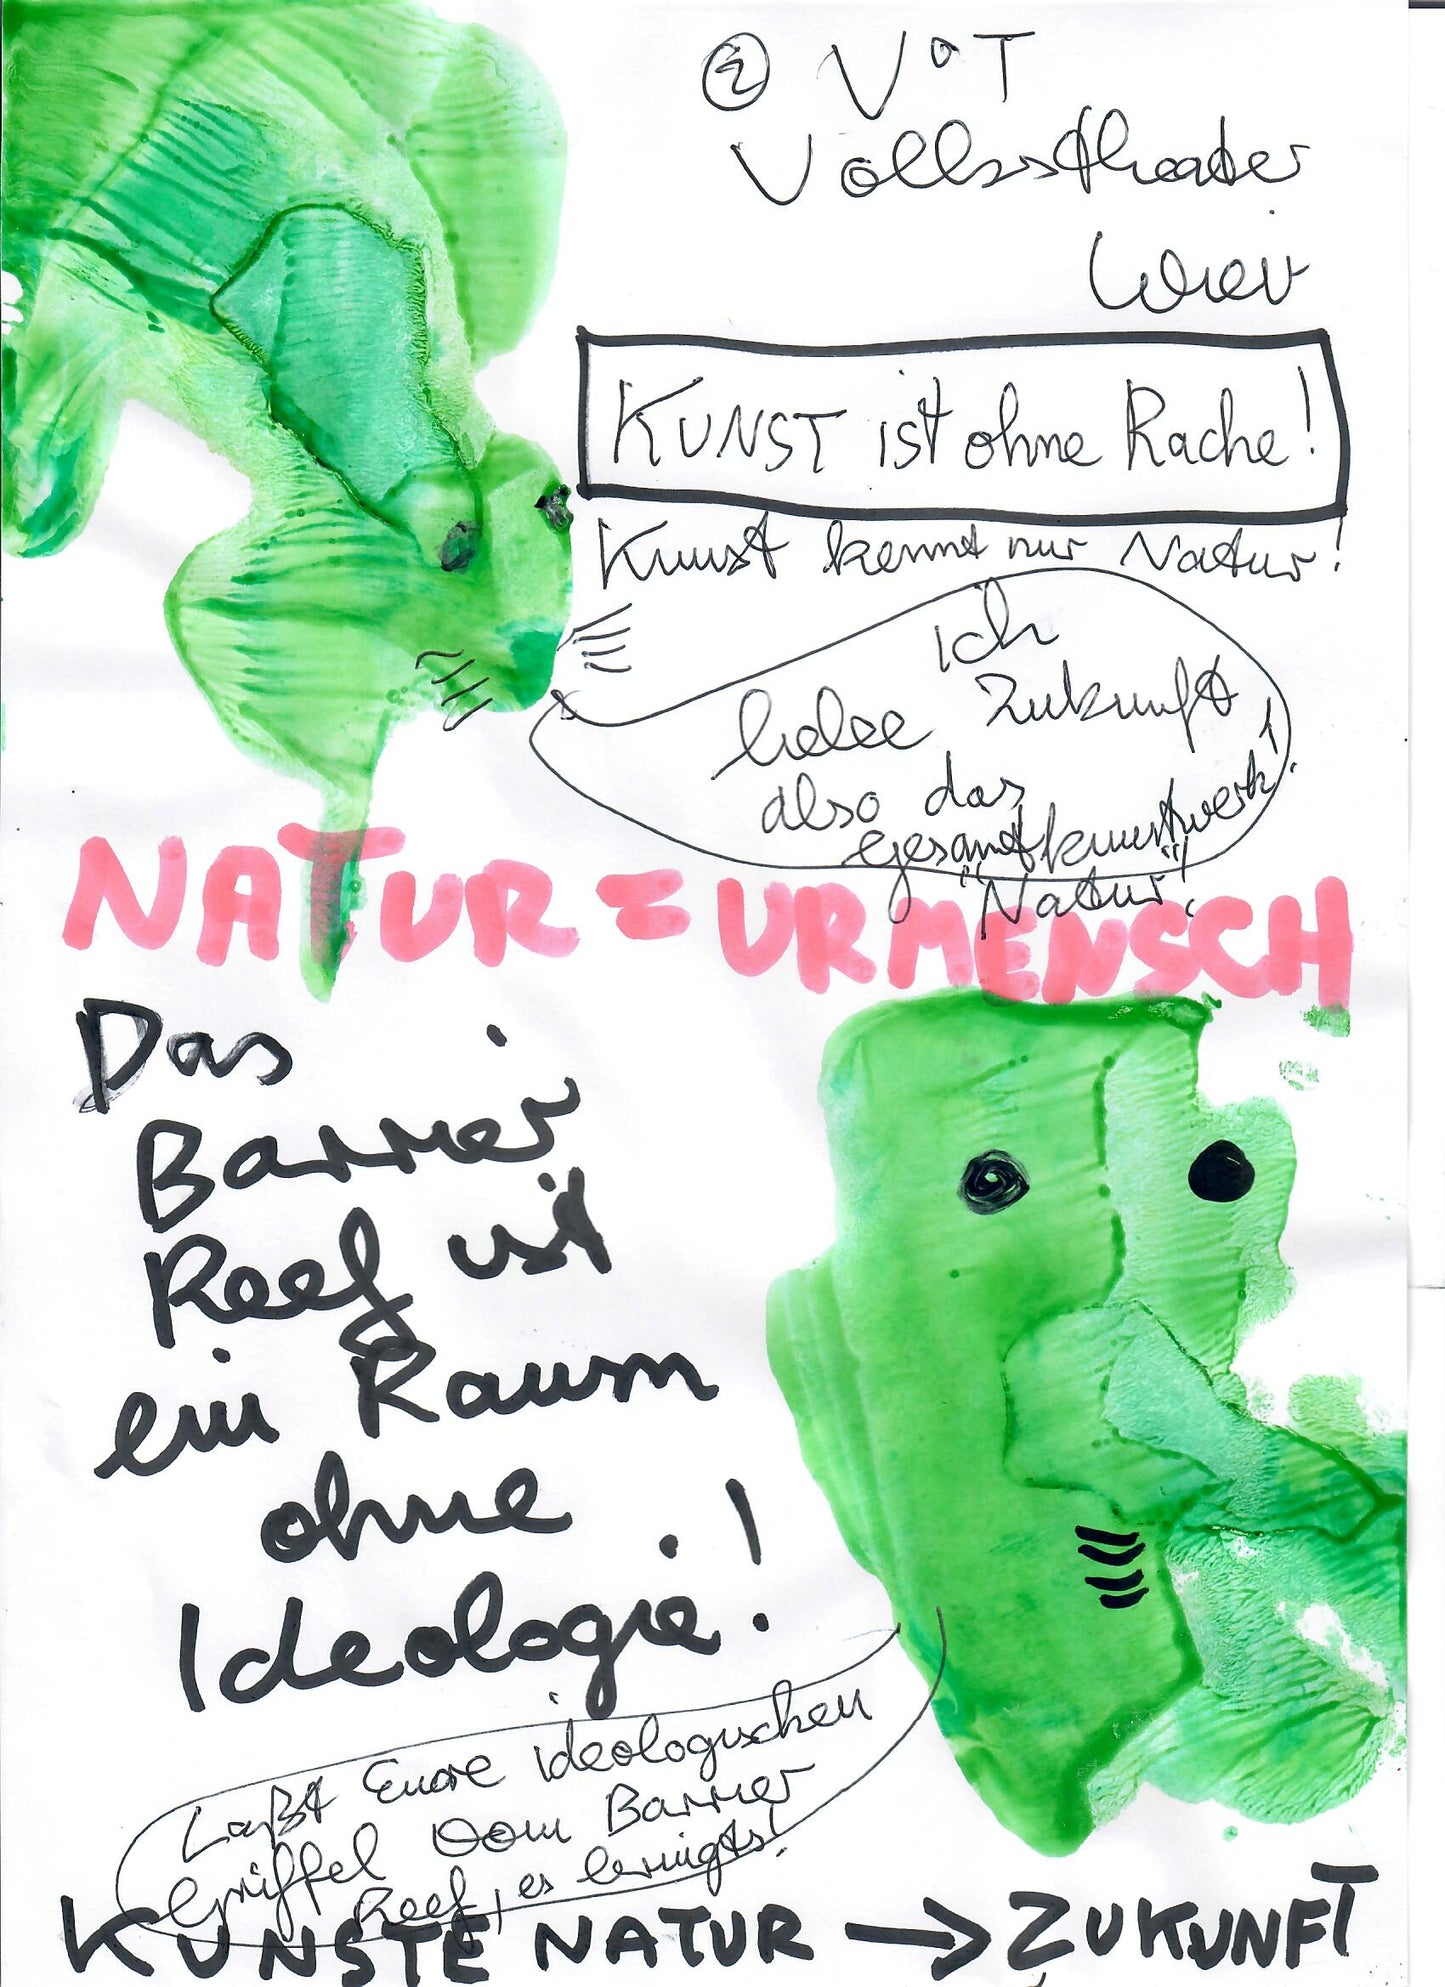 ② VoT
Volksstheater
Wien
KUNST ist ohne Rache!
Kunst kennt nur Natur!
ich
liebe Zukunft
also das
gesamtkunstwerk!
"Natur"!
NATUR = URMENSCH
Das
Barrier
Reef ist
ein Raum
ohne
Ideologie!
Laßt Eure ideologischen
Griffel vom Barrier
Reef, es
KUNSTE NATUR → ZUKUNFT